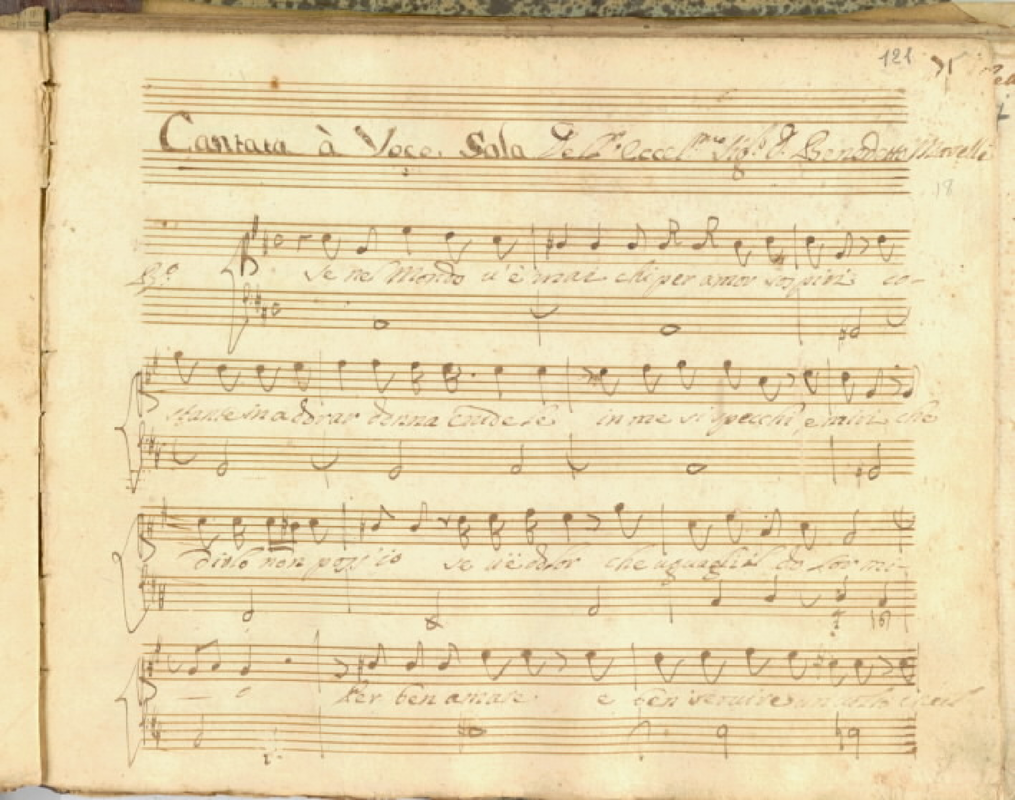 121
Cantata à Voce Sola Dell' Eccel.mo Sig.r D. Benedetto Marcello
18
Se ne Mondo u'è mai chi per amor sospiri co-
stante in adorar donna Crudele in me si specchi, e miri che
dirlo non poss'io se u'è dolor che uguagli il do lor mi-
- o Per ben amare e ben seruire